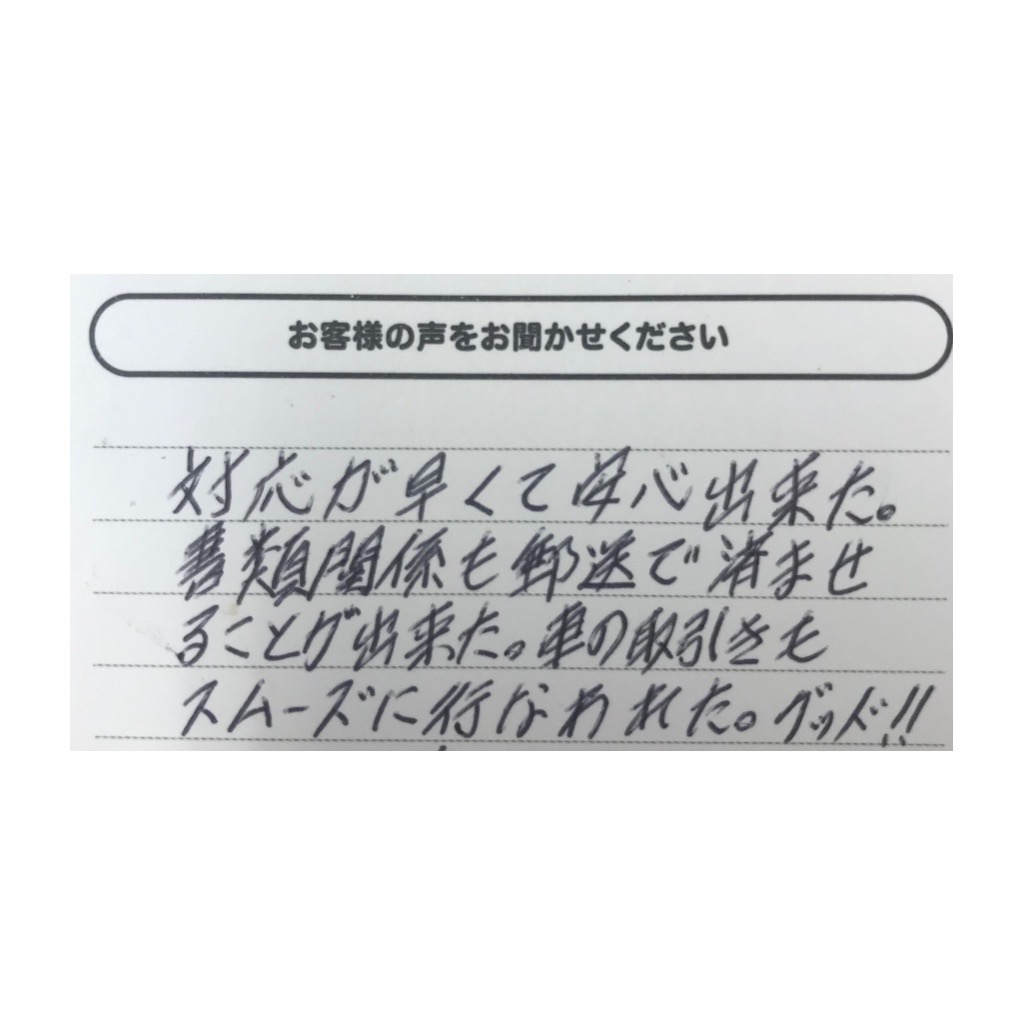 お客様の声をお聞かせください
対応が早くて安心出来た。
書類関係も郵送で済ませ
ることが出来た。車の取引きも
スムーズに行なわれた。グッド!!